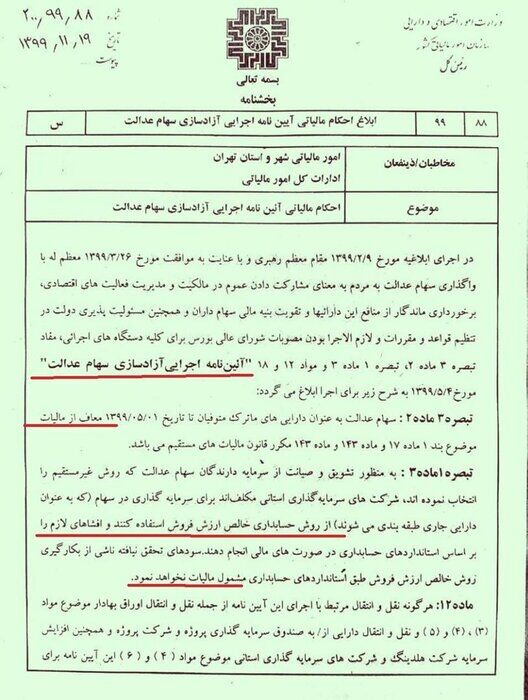 وزارت امور اقتصادی و دارایی
سازمان امور مالیاتی کشور
رئیس کل
شماره ۲۰۰,۹۹,۸۸
تاریخ ۱۳۹۹,۱۱,۱۹
پیوست
بسمه تعالی
بخشنامه
۸۸ ۹۹ ابلاغ احکام مالیاتی آیین نامه اجرایی آزادسازی سهام عدالت س
مخاطبان/ذینفعان امور مالیاتی شهر و استان تهران
ادارات کل امور مالیاتی
موضوع احکام مالیاتی آئین نامه اجرایی آزادسازی سهام عدالت
در اجرای ابلاغیه مورخ ۱۳۹۹/۲/۹ مقام معظم رهبری و با عنایت به موافقت مورخ ۱۳۹۹/۳/۲۶ معظم له با
واگذاری سهام عدالت به مردم به معنای مشارکت دادن عموم در مالکیت و مدیریت فعالیت های اقتصادی،
برخورداری ماندگار از منافع این دارائیها و تقویت بنیه مالی سهام داران و همچنین مسئولیت پذیری دولت در
تنظیم قواعد و مقررات و لازم الاجرا بودن مصوبات شورای عالی بورس برای کلیه دستگاه های اجرائی، مفاد
تبصره ۳ ماده ۲، تبصره ۱ ماده ۳ و مواد ۱۲ و ۱۸ "آئین‌نامه اجرایی آزادسازی سهام عدالت"
مورخ ۱۳۹۹/۵/۴ به شرح زیر برای اجرا ابلاغ می گردد:
تبصره۳ ماده۲: سهام عدالت به عنوان دارایی های ماترک متوفیان تا تاریخ ۱۳۹۹/۰۵/۰۱ معاف از مالیات
موضوع بند ۱ ماده ۱۷ و ماده ۱۴۳ و ماده ۱۴۳ مکرر قانون مالیات های مستقیم می باشد.
تبصره۱ماده۳: به منظور تشویق و صیانت از سرمایه دارندگان سهام عدالت که روش غیرمستقیم را
انتخاب نموده اند، شرکت های سرمایه‌گذاری استانی مکلف‌اند برای سرمایه گذاری در سهام (که به عنوان
دارایی جاری طبقه بندی می شوند) از روش حسابداری خالص ارزش فروش استفاده کنند و افشاهای لازم را
بر اساس استانداردهای حسابداری در صورت های مالی انجام دهند.سودهای تحقق نیافته ناشی از بکارگیری
روش خالص ارزش فروش طبق استانداردهای حسابداری مشمول مالیات نخواهد نمود.
ماده۱۲: هرگونه نقل و انتقال مرتبط با اجرای این آیین نامه از جمله نقل و انتقال اوراق بهادار موضوع مواد
(۳) ، (۴) و (۵) و نقل و انتقال دارایی از/ به صندوق سرمایه گذاری پروژه و شرکت پروژه و همچنین افزایش
سرمایه شرکت هلدینگ و شرکت های سرمایه گذاری استانی موضوع مواد (۴) و (۶) این آیین نامه برای